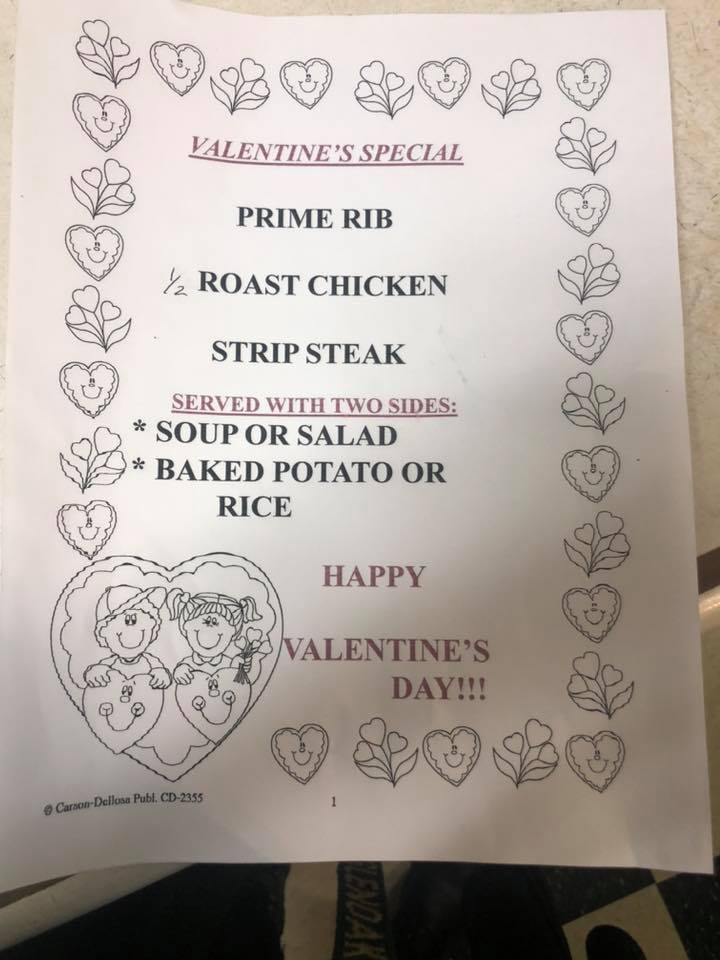 VALENTINE'S SPECIAL
PRIME RIB
½ ROAST CHICKEN
STRIP STEAK
SERVED WITH TWO SIDES:
* SOUP OR SALAD
* BAKED POTATO OR
RICE
HAPPY
VALENTINE'S
DAY!!!
© Carson-Dellosa Publ. CD-2355
1